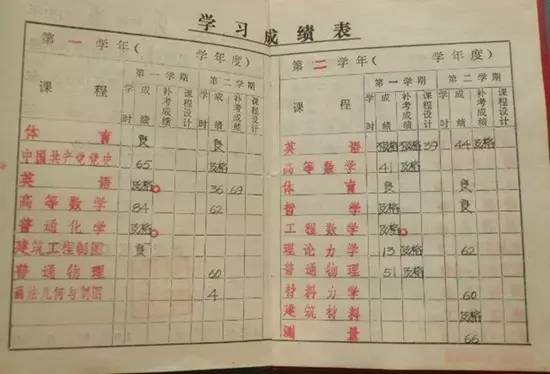 学习成绩表
第一学年( 学年度)
课程 第一学期 第二学期
学时 成绩 补考成绩 课程设计 学时 成绩 补考成绩 课程设计
体育 良 良
中国共产党党史 65 及格
英语 及格 36 69
高等数学 84 62
普通化学 及格
建筑工程制图 良
普通物理 60
画法几何与制图 4
第二学年( 学年度)
课程 第一学期 第二学期
学时 成绩 补考成绩 课程设计 学时 成绩 补考成绩 课程设计
英语 不及格 不及格 39 44 及格
高等数学 41 及格
体育 良 良
哲学 及格 及格
工程数学 及格
理论力学 13 及格 62
普通物理 51 及格
材料力学 60
建筑材料 及格
测量 66